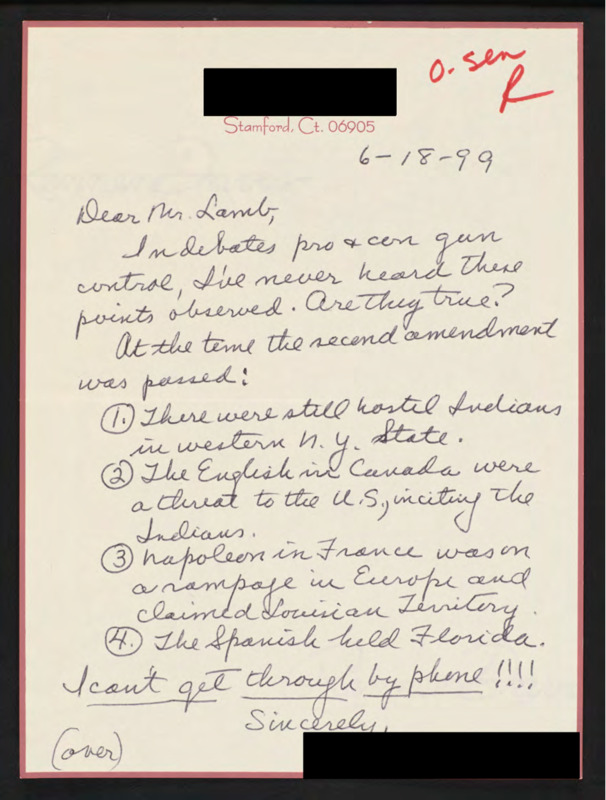 O. Sen
R
Stamford, Ct. 06905
6-18-99
Dear Mr. Lamb,
In debates pro & con gun
control, I've never heard these
points observed. Are they true?
At the teme the second amendment
was passed:
1. There were still hostel Indians
in western N.Y. State.
2 The English in Canada were
a threat to the U.S., inciting the
Indians.
3 Napoleon in France was on
a rampage in Europe and
claimed Louisian Territory.
4. The Spanish held Florida.
I can't get through by phone!!!!
Sincerely,
(over)